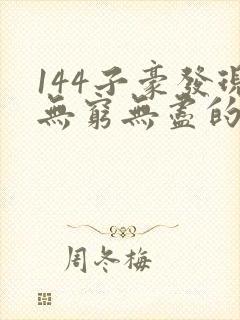 144子豪發現
無窮無盡的
周冬梅